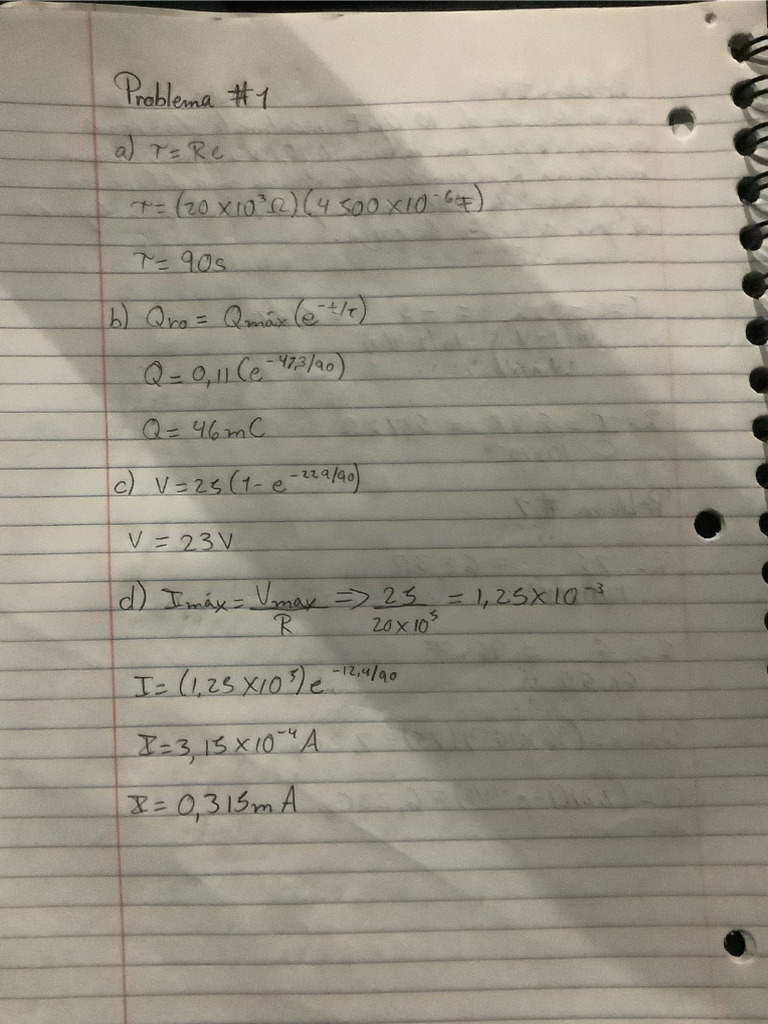 Problema #1
a) τ = Rc
τ = (20 x 10³Ω)(4 500 x 10⁻⁶F)
τ = 90s
b) Qro = Qmáx (e^-t/τ)
Q = 0,11 (e^-47,3/90)
Q = 46mC
c) V = 25 (1 - e^-229/90)
V = 23V
d) Imáx = Vmax/R => 25/20 x 10³ = 1,25 x 10⁻³
I = (1,25 x 10³) e^-12,4/90
I = 3,15 x 10⁻⁴ A
I = 0,315m A